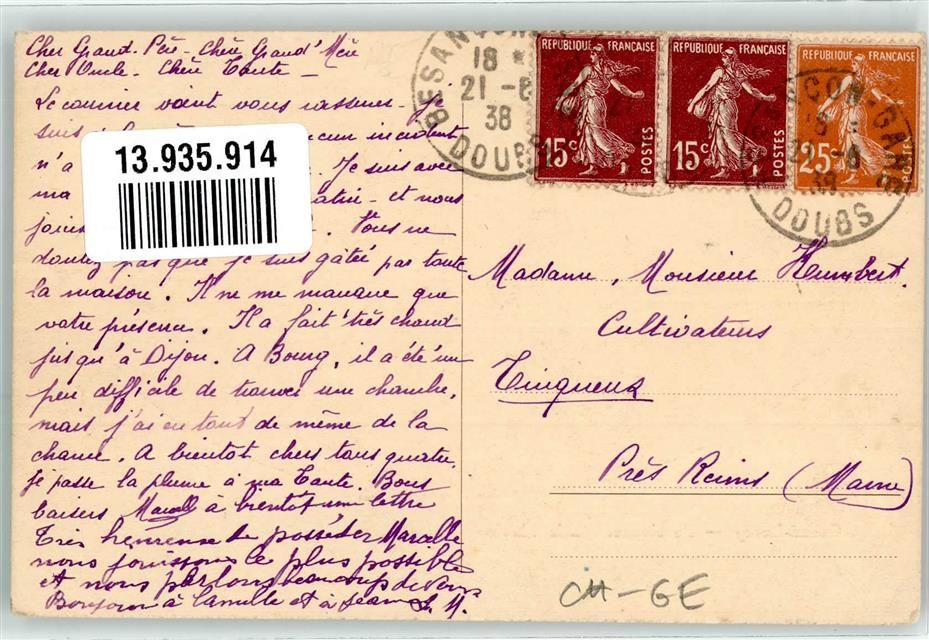 Cher Grand-Père - Chère Grand'Mère
Cher Oncle - Chère Tante -
Ce courrier vient vous rassurer - je
suis incident
n'a Je suis avec
ma - et nous
Vous ne
doutez pas que je suis gâtée par toute
la maison. Il ne me manque que
votre présence. Il a fait très chaud
jusqu'à Dijon. A Bourg, il a été un
peu difficile de trouver une chambre,
mais j'ai eu tout de même de la
chance. A bientôt chers tous quatre,
je passe la plume à ma Tante. Bons
baisers Marcelle à bientôt une lettre
Très heureuse de posséder Marcelle
nous jouissons le plus possible
et nous parlons beaucoup de vous
Bonjour à Camille et à Jean L. M.
13.935.914
BESANÇON
18
21 -8
38
DOUBS
REPUBLIQUE FRANÇAISE
15c
POSTES
REPUBLIQUE FRANÇAISE
15c
POSTES
REPUBLIQUE FRANÇAISE
25c
POSTES
GARE
38
DOUBS
Madame, Monsieur Humbert.
Cultivateurs
Tinqueux
Près Reims (Marne)
CH-GE